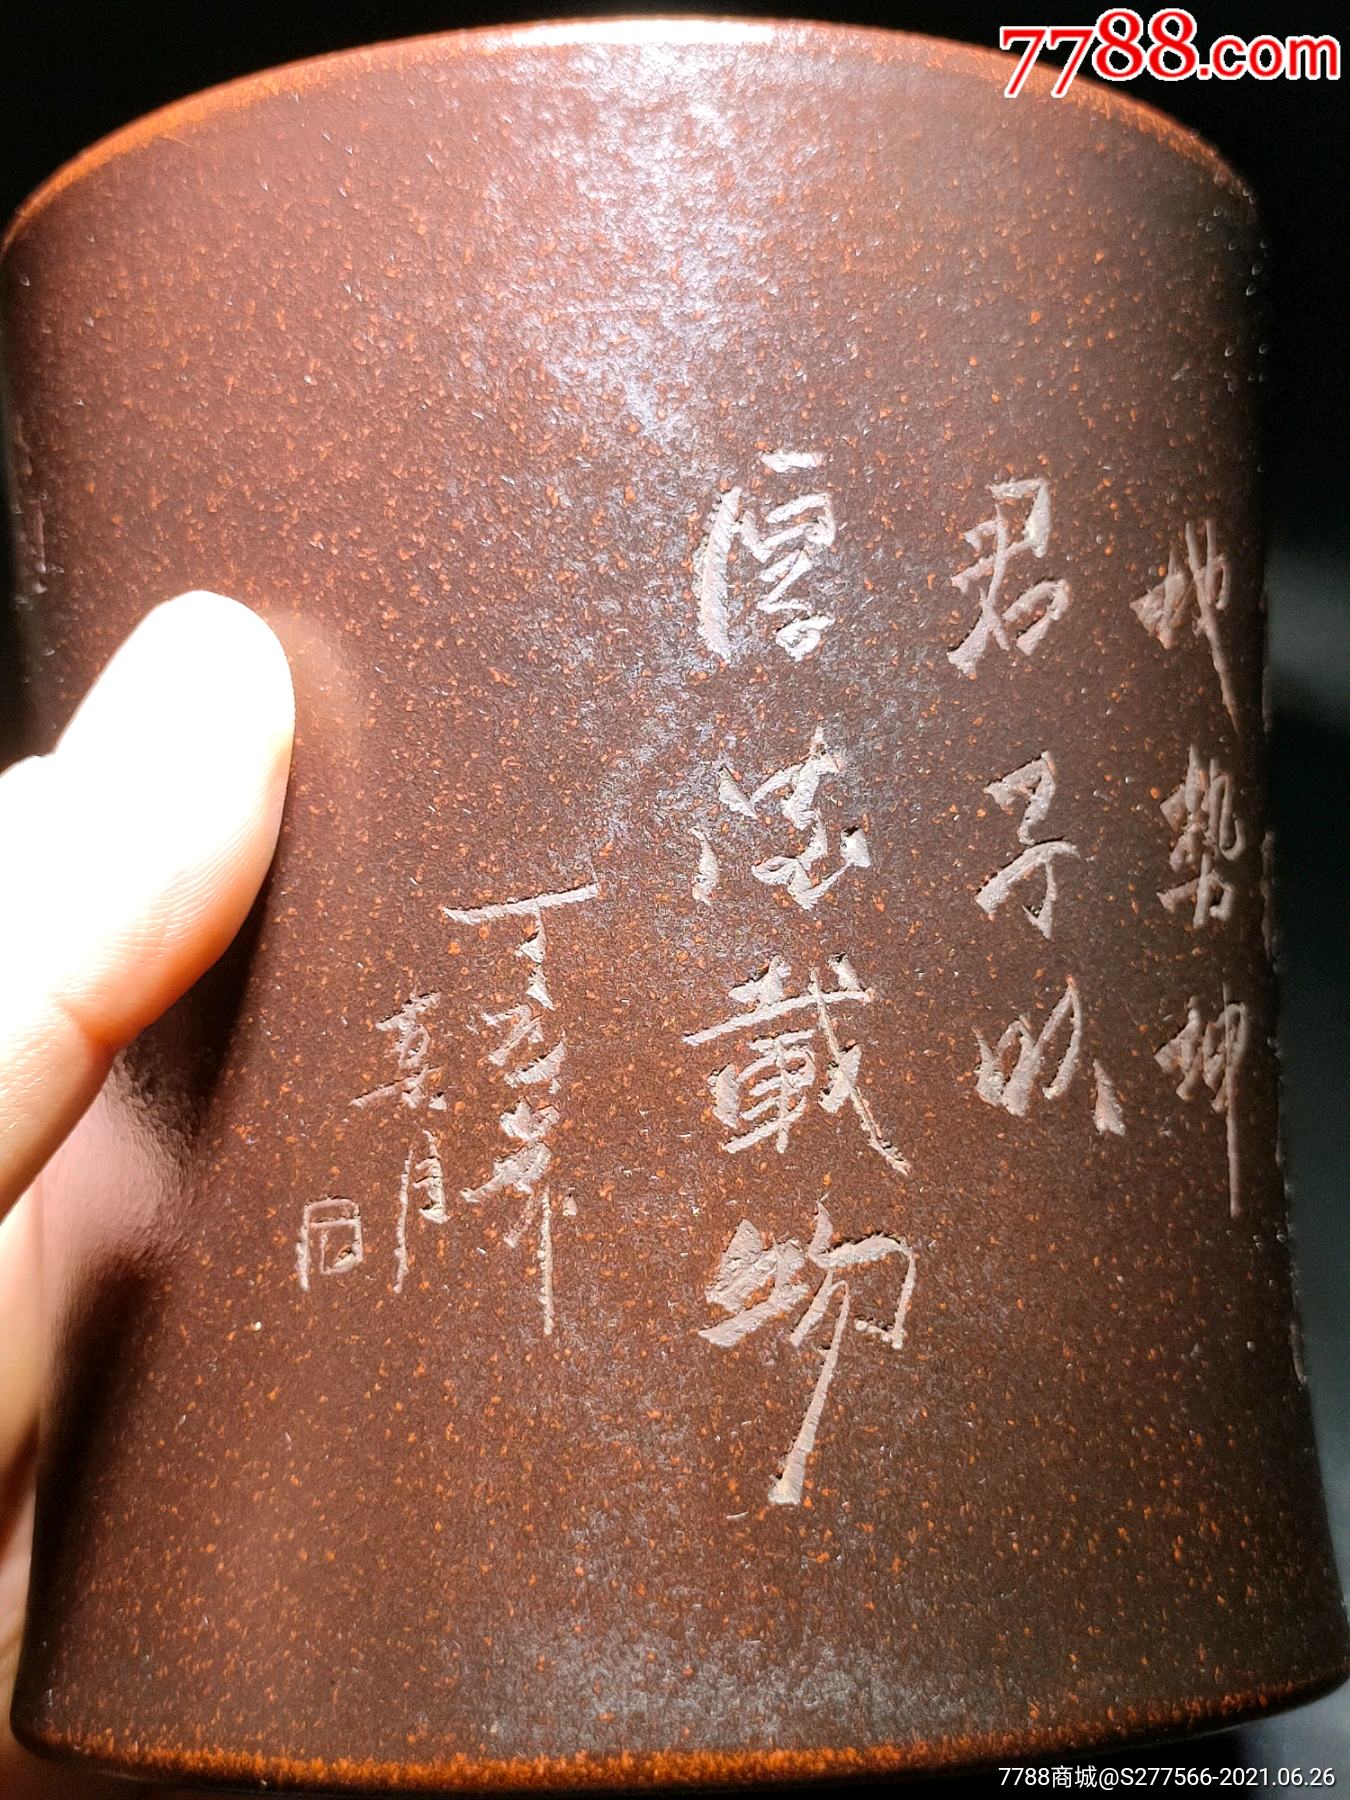 7788.com
地势坤
君子以
厚德載物
丁亥年
夏月
7788商城@S277566-2021.06.26